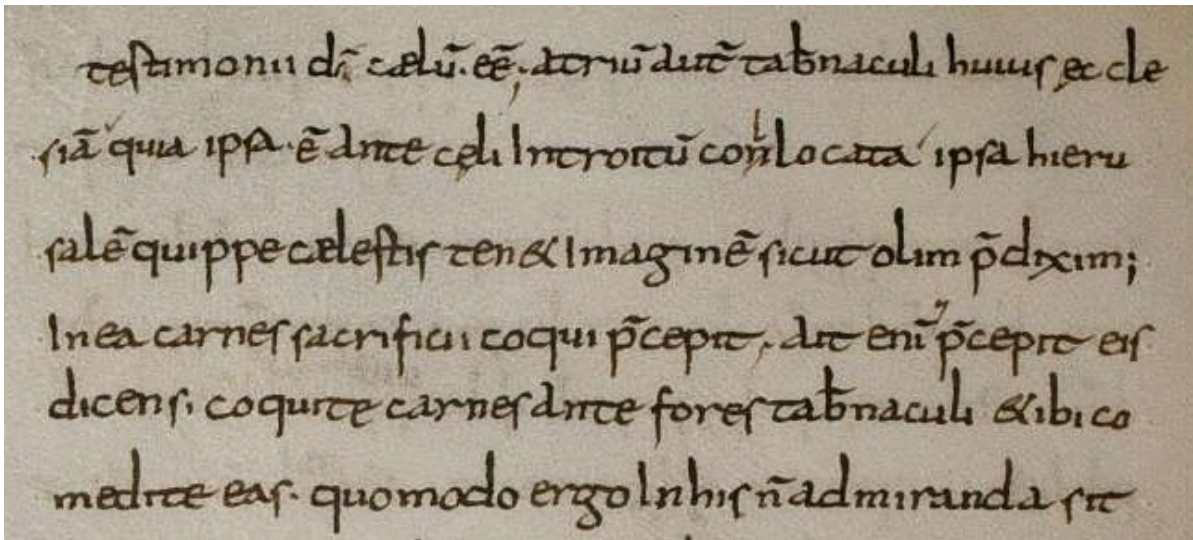 testimonii dī cælū. eē; atriū aut̄ tab̄naculi huius ęccle
siā quia ipsa. ē ante cęli Introitū conlocata ipsa hieru
salē quippe cælestis ten& Imaginē sicut olim p̄dixim;
In ea carnes sacrificii coqui p̄cepit. ait enī p̄cepit eis
dicens. coquite carnes ante fores tab̄naculi & ibi co
medite eas. quomodo ergo In his n̄ admiranda sit